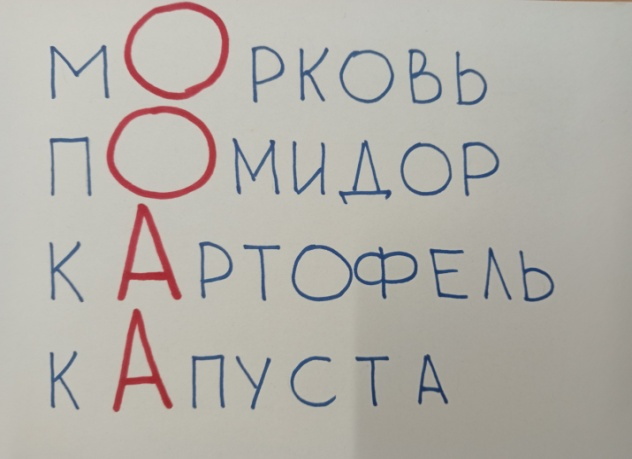 МОРКОВЬ
ПОМИДОР
КАРТОФЕЛЬ
КАПУСТА